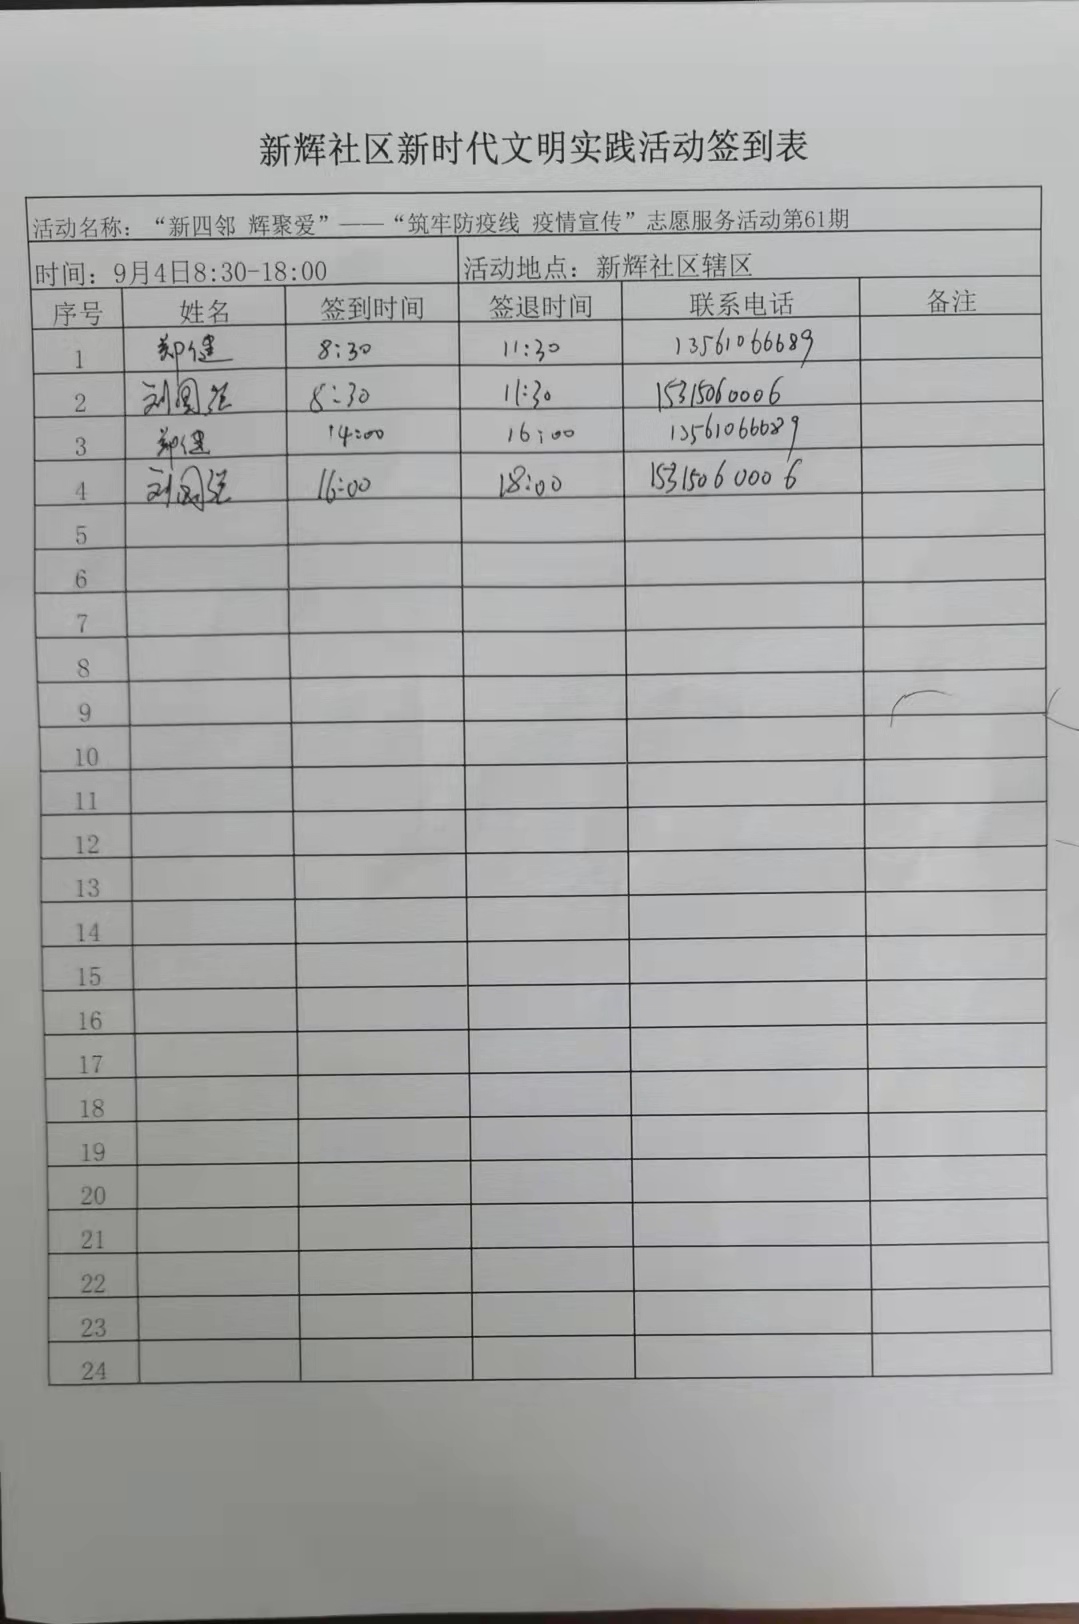 新辉社区新时代文明实践活动签到表
活动名称：“新四邻 辉聚爱”——“筑牢防疫线 疫情宣传”志愿服务活动第61期
时间：9月4日8:30-18:00 活动地点：新辉社区辖区
序号 姓名 签到时间 签退时间 联系电话 备注
1 郑健 8:30 11:30 13561066689
2 刘国强 8:30 11:30 15315060006
3 郑健 14:00 16:00 13561066689
4 刘国强 16:00 18:00 15315060006
5
6
7
8
9
10
11
12
13
14
15
16
17
18
19
20
21
22
23
24